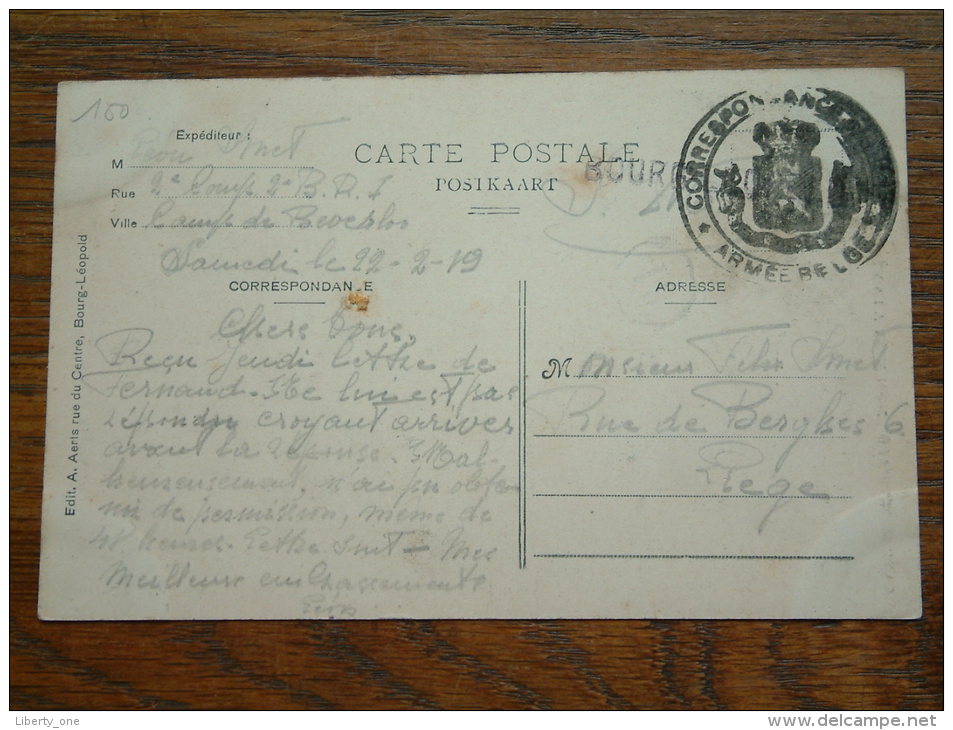 150
Expéditeur :
M Léon Smet
Rue 2e Comp 2e B. D. I
Ville Camp de Beverloo
Samedi le 22-2-19
CARTE POSTALE
POSTKAART
BOURG
CORRESPONDANCE
ARMÉE BELGE
CORRESPONDANCE
ADRESSE
Chers Tous,
Reçu Jeudi lettre de
Fernand. Ne lui est pas
répondu croyant arriver
avant la réponse. Mal-
heureusement, n'ai pu obte-
nir de permission, même de
48 heures. Lettre suit - Mes
Meilleurs embrassements
Léon
M Monsieur Félix Smet
Rue de Berghes 6
Liege
Edit. A. Aerts rue du Centre, Bourg-Léopold
Liberty_one
delcampe.net